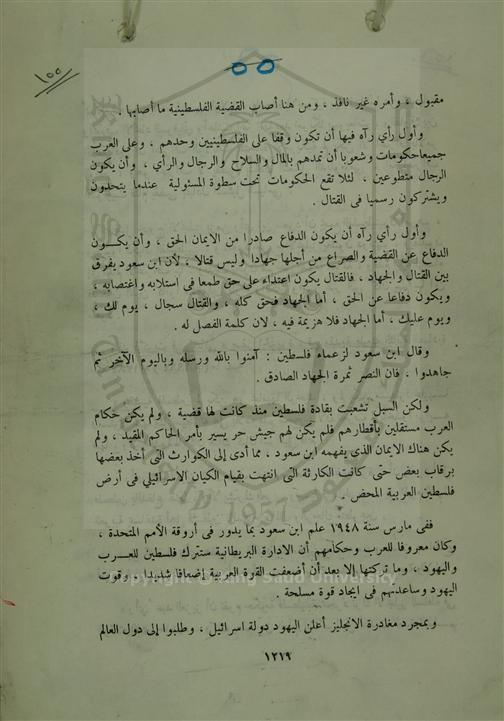 ١٥٥
٥٥
مقبول ، وأمره غير نافذ ، ومن هنا أصاب القضية الفلسطينية ما أصابها .
وأول رأي رآه فيها أن تكون وقفا على الفلسطينيين وحدهم ، وعلى العرب
جميعا حكومات وشعوبا أن تمدهم بالمال والسلاح والرجال والرأي ، وأن يكون
الرجال متطوعين ، لئلا تقع الحكومات تحت سطوة المسئولية عندما يتحدون
ويشتركون رسميا فى القتال .
وأولى رأي رآه أن يكون الدفاع صادرا من الايمان الحق ، وأن يكـــون
الدفاع عن القضية والصراع من أجلها جهادا وليس قتالا ، لأن ابن سعود يفرق
بين القتال والجهاد ، فالقتال يكون اعتداء على حق طمعا فى استلابه واغتصابه ،
ويكون دفاعا عن الحق ، أما الجهاد فحق كله ، والقتال سجال ، يوم لك ،
ويوم عليك ، أما الجهاد فلا هزيمة فيه ، لان كلمة الفصل له .
وقال ابن سعود لزعماء فلسطين : آمنوا بالله ورسله وباليوم الآخر ثم
جاهدوا ، فان النصر ثمرة الجهاد الصادق .
ولكن السبل تشعبت بقادة فلسطين منذ كانت لها قضية ، ولم يكن حكام
العرب مستقلين بأقطارهم فلم يكن لهم جيش حر يسير بأمر الحاكم المقيد ، ولم
يكن هناك الايمان الذى يفهمه ابن سعود ، مما أدى إلى الكوارث التى أخذ بعضها
برقاب بعض حتى كانت الكارثة التى انتهت بقيام الكيان الاسرائيلي فى أرض
فلسطين العربية المحض .
ففى مارس سنة ١٩٤٨ علم ابن سعود بما يدور فى أروقة الأمم المتحدة ،
وكان معروفا للعرب وحكامهم أن الادارة البريطانية ستترك فلسطين للعـــرب
واليهود ، وما تركتها إلا بعد أن أضعفت القوة العربية إضعافا شديدا ، وقوت
اليهود وساعدتهم فى ايجاد قوة مسلحة .
وبمجرد مغادرة الانجليز أعلن اليهود دولة اسرائيل ، وطلبوا إلى دول العالم
١٢١٩
Copyright © King Saud University
1957